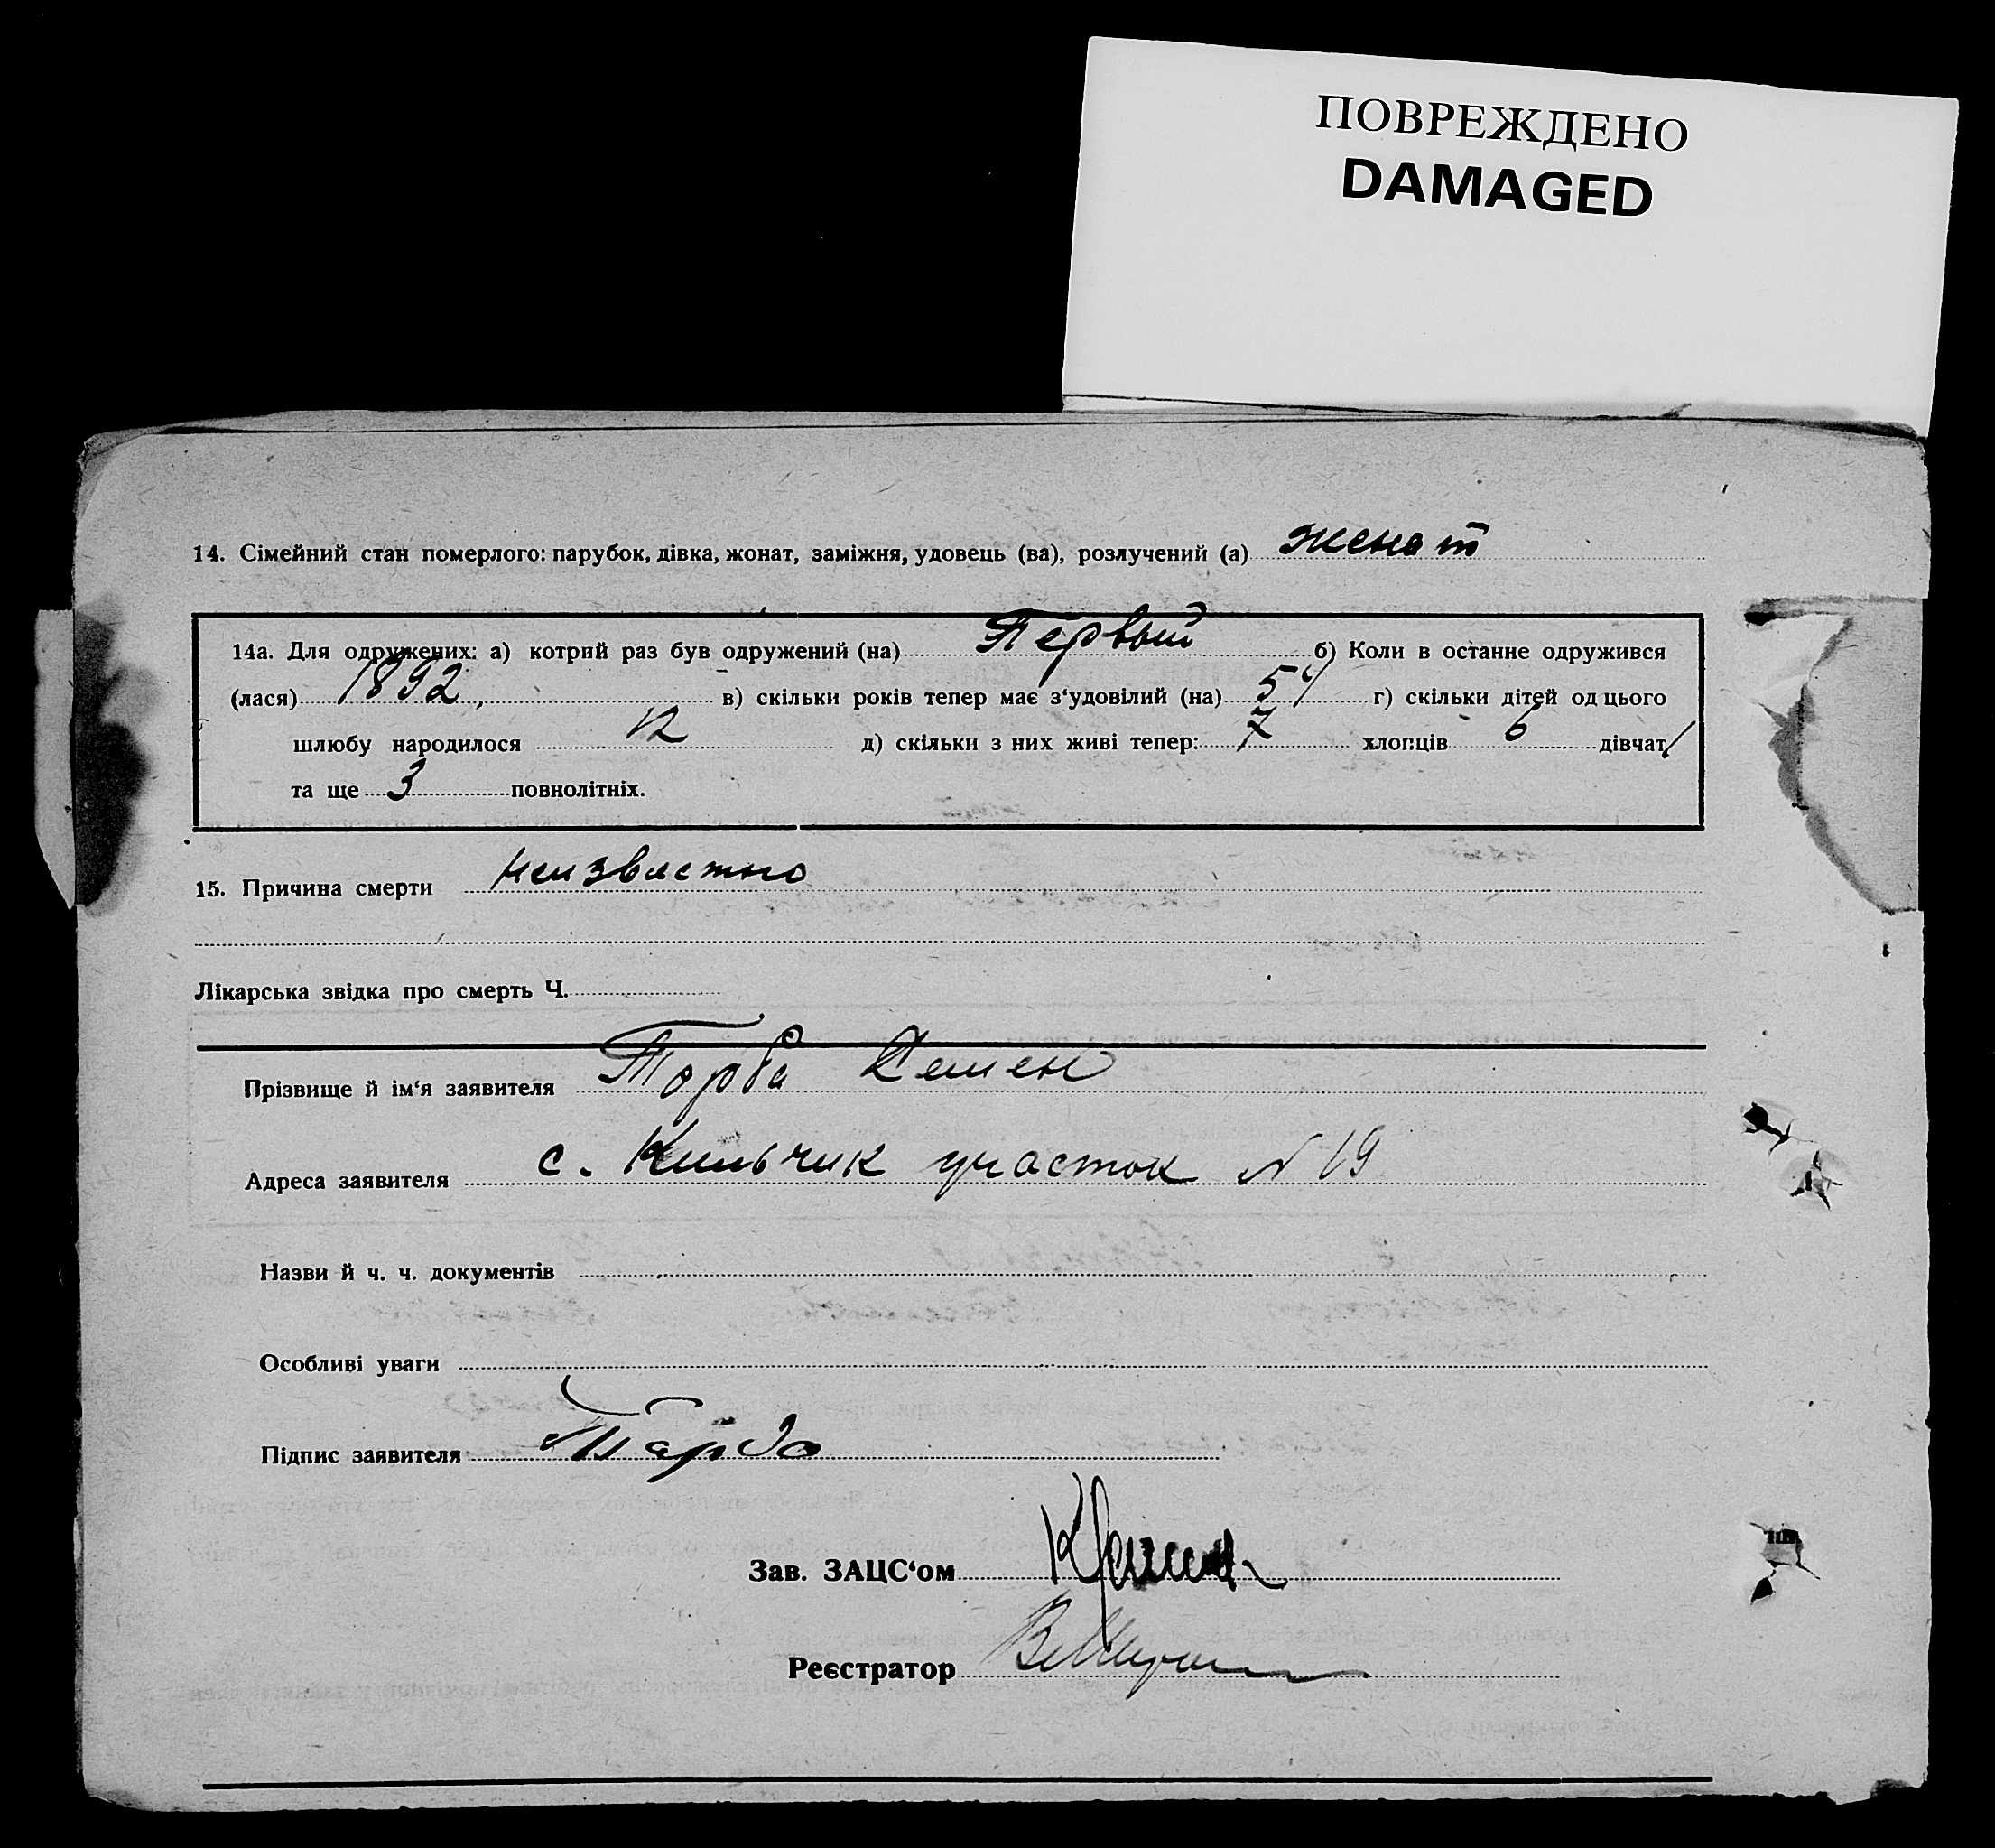 ПОВРЕЖДЕНО
DAMAGED
14. Сімейний стан померлого: парубок, дівка, жонат, заміжня, удовець (ва), розлучений (а) женат
14а. Для одружених: а) котрий раз був одружений (на) Первый б) Коли в останнє одружився
(лася) 1892, в) скільки років тепер має з‘удовілий (на) 59 г) скільки дітей од цього
шлюбу народилося 12 д) скільки з них живі тепер: 7 хлопців 6 дівчат 1
та ще 3 повнолітніх.
15. Причина смерти неизвестно
Лікарська звідка про смерть Ч.
Прізвище й ім‘я заявителя Торба Семен
Адреса заявителя с. Кильчик участок N 19
Назви й ч. ч. документів
Особливі уваги
Підпис заявителя
Зав. ЗАЦС‘ом
Реєстратор